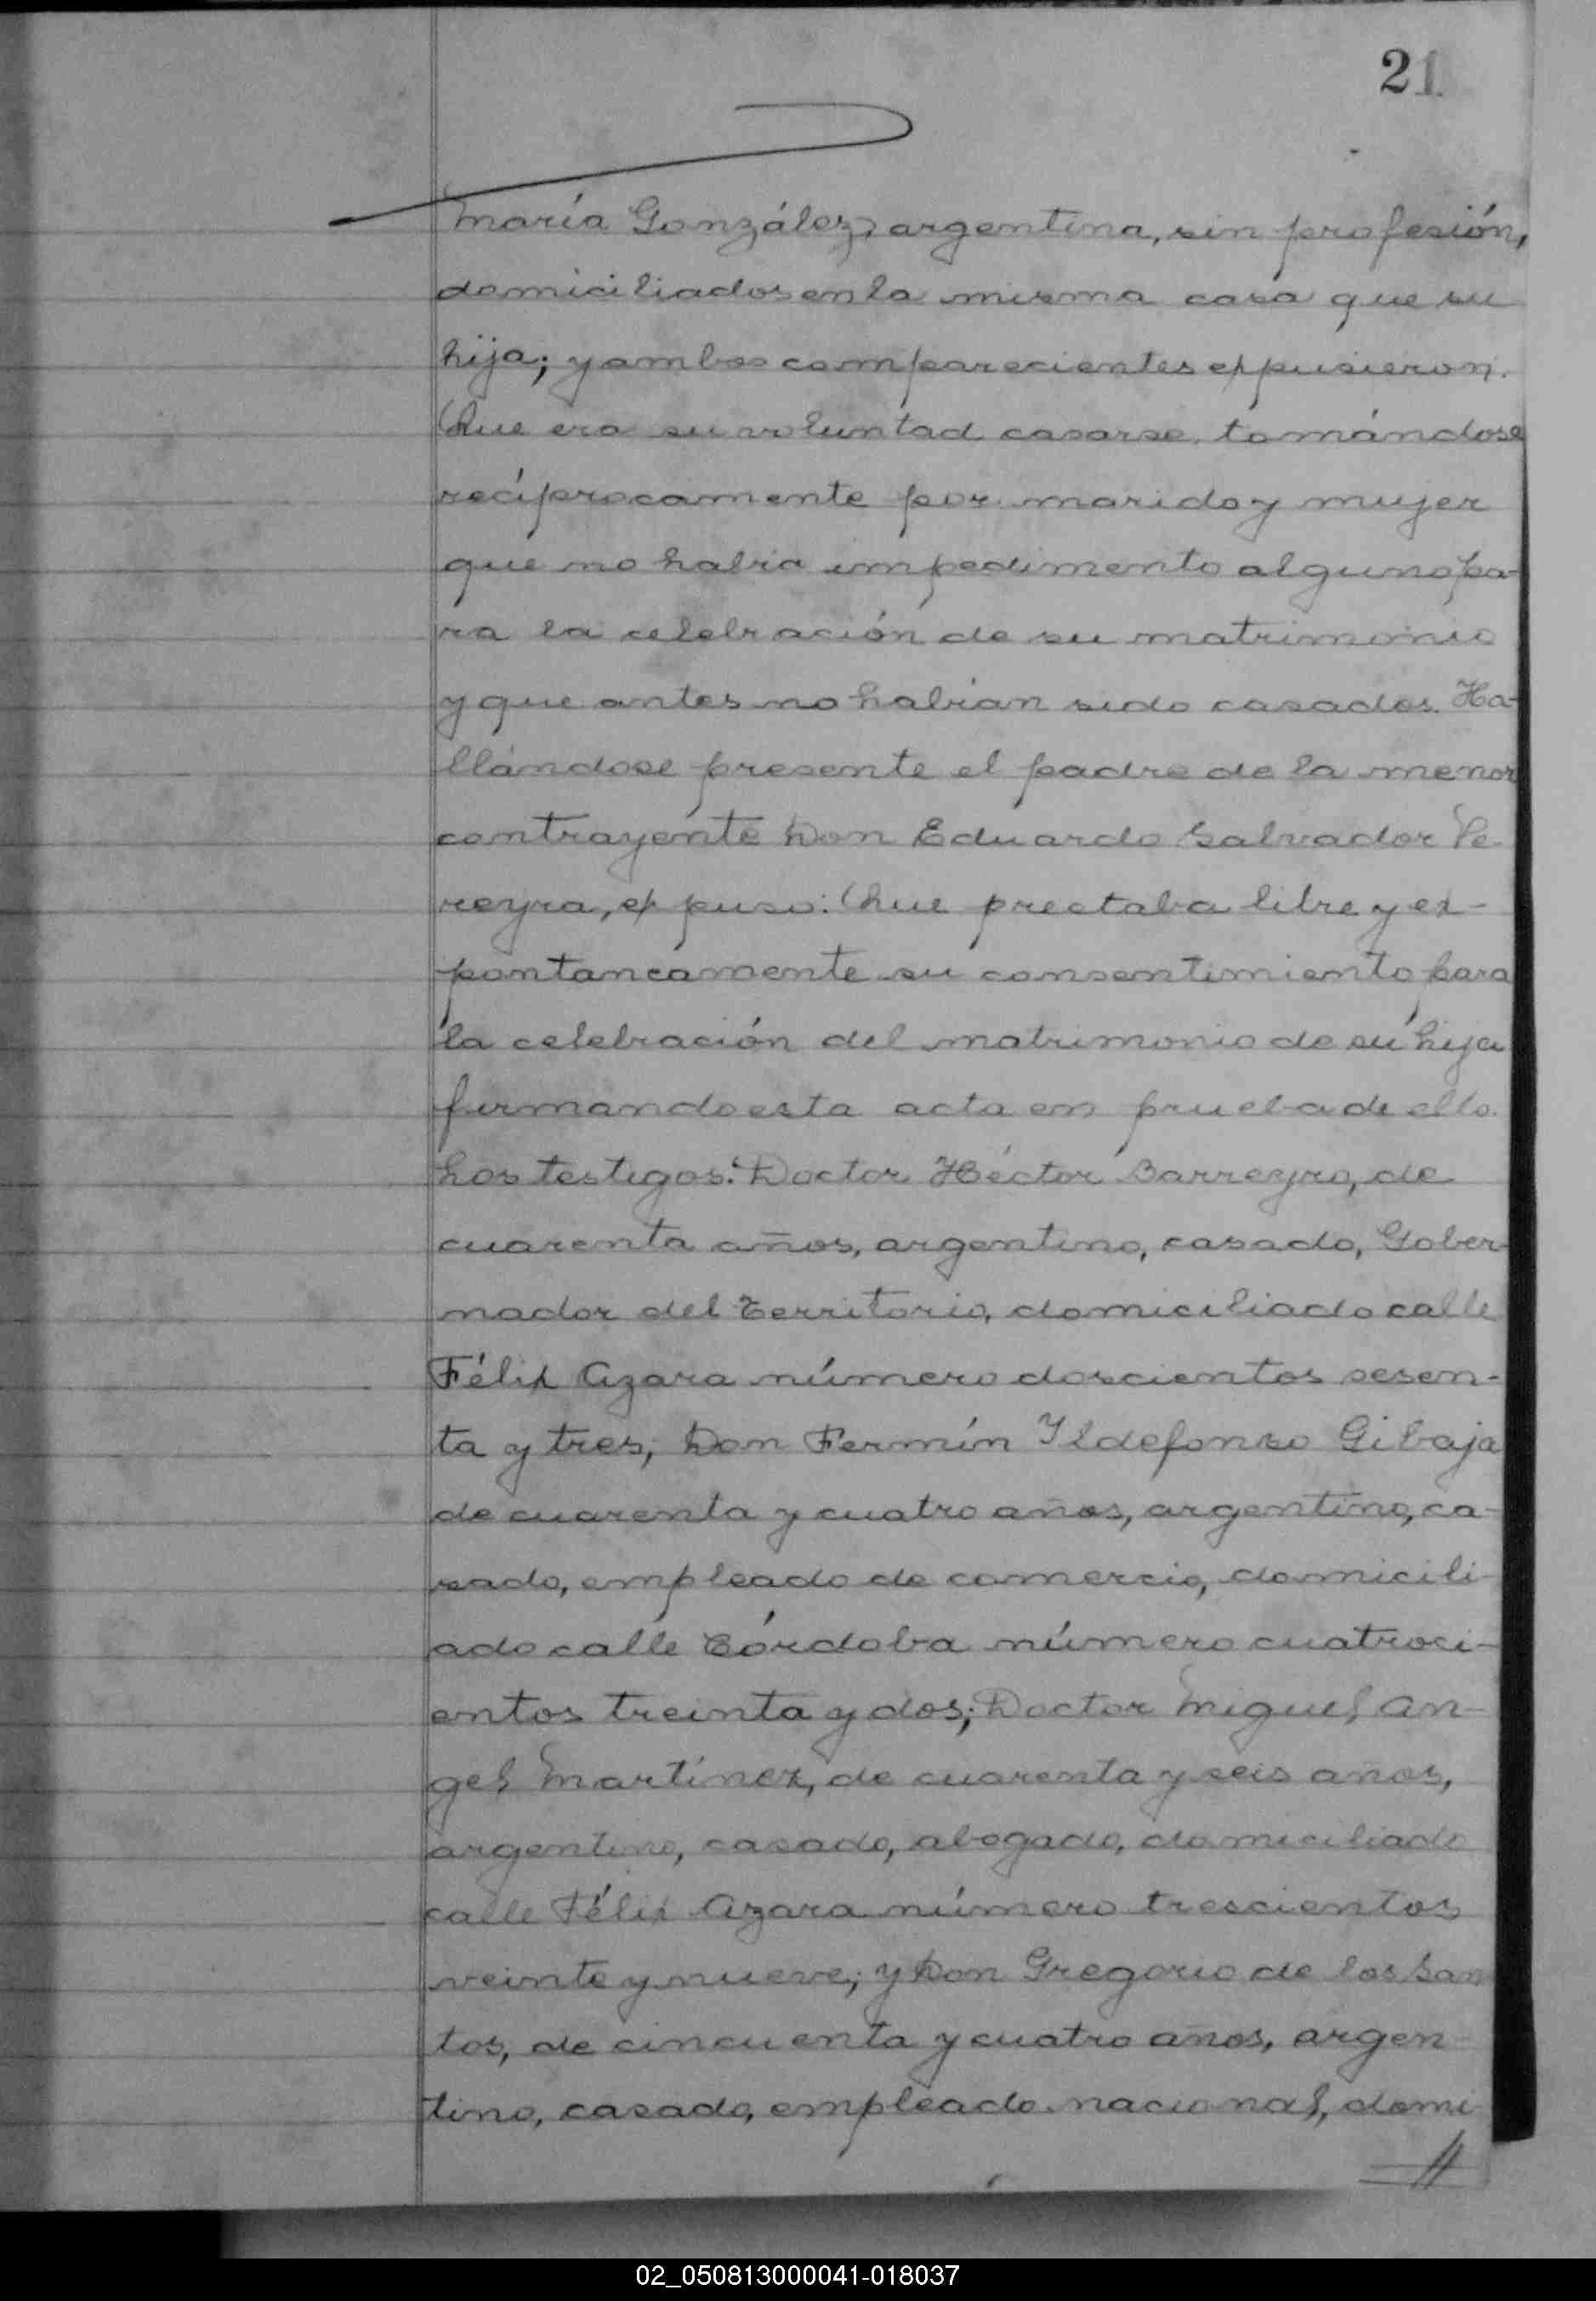 21
María González, argentina, sin profesión,
domiciliados en la misma casa que su
hija; y ambos comparecientes expusieron:
Que era su voluntad casarse, tomándose
recíprocamente por marido y mujer
que no había impedimento alguno pa-
ra la celebración de su matrimonio
y que antes no habían sido casados. Ha-
llándose presente el padre de la menor
contrayente Don Eduardo Salvador Pe-
reyra, expuso: Que prestaba libre y ex-
pontaneamente su consentimiento para
la celebración del matrimonio de su hija
firmando esta acta en prueba de ello.
Los testigos: Doctor Héctor Barreyro, de
cuarenta años, argentino, casado, Gober-
nador del Territorio, domiciliado calle
Félix Azara número doscientos sesen-
ta y tres; Don Fermín Ildefonso Gibaja
de cuarenta y cuatro años, argentino, ca-
sado, empleado de comercio, domicili-
ado calle Córdoba número cuatroci-
entos treinta y dos; Doctor Miguel An-
gel Martínez, de cuarenta y seis años,
argentino, casado, abogado, domiciliado
calle Félix Azara número trescientos
veinte y nueve; y Don Gregorio de los San
tos, de cincuenta y cuatro años, argen-
tino, casado, empleado nacional, domi
02_050813000041-018037